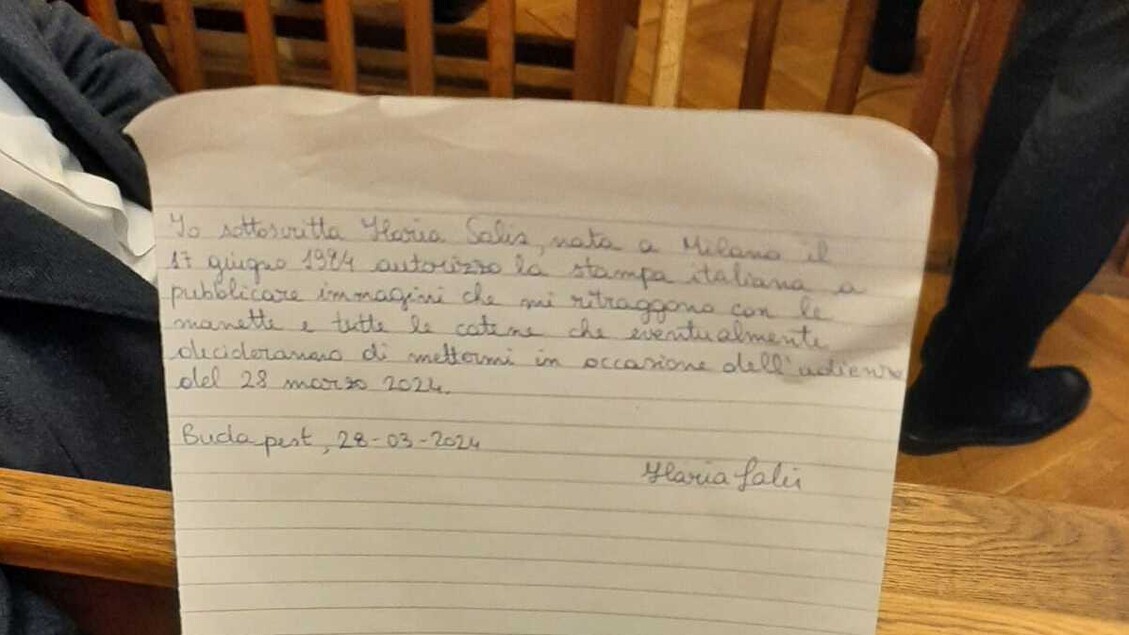 Io sottoscritta Ilaria Salis, nata a Milano il
17 giugno 1984 autorizzo la stampa italiana a
pubblicare immagini che mi ritraggono con le
manette e tutte le catene che eventualmente
decideranno di mettermi in occasione dell'udienza
del 28 marzo 2024.
Budapest, 28-03-2024
Ilaria Salis